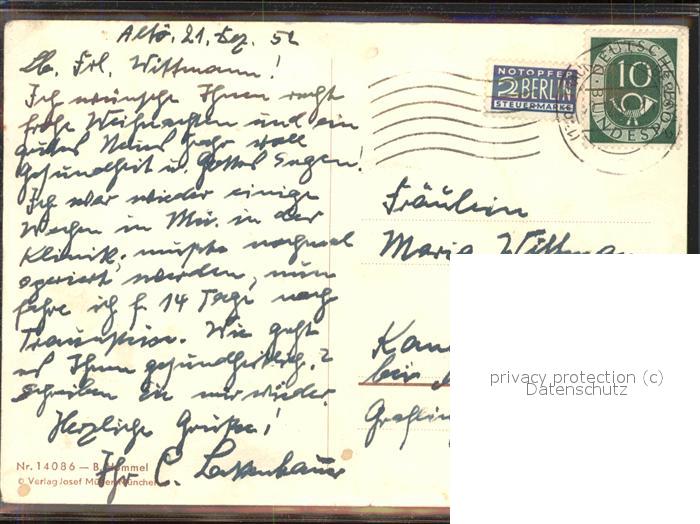 21. Dez. 52
Lb. Frl. Wittmann!
Ich wünsche Ihnen recht
frohe Weihnachten und ein
gutes Neues Jahr voll
Gesundheit u. Gottes Segen!
Ich war wieder einige
Wochen in Mü. in der
Klinik, mußte nochmal
operiert werden, nun
fahre ich f. 14 Tage nach
Traunstein. Wie geht
es Ihnen gesundheitlich?
Schreiben Sie mir wieder.
Herzliche Grüße!
Ihr C.
Nr. 14086 — B. Hommel
© Verlag Josef Müller München
NOTOPFER
2 BERLIN
STEUERMARKE
DEUTSCHE
10
BUNDESPOST
Fräulein
Maria Wittma
bei
privacy protection (c)
Datenschutz